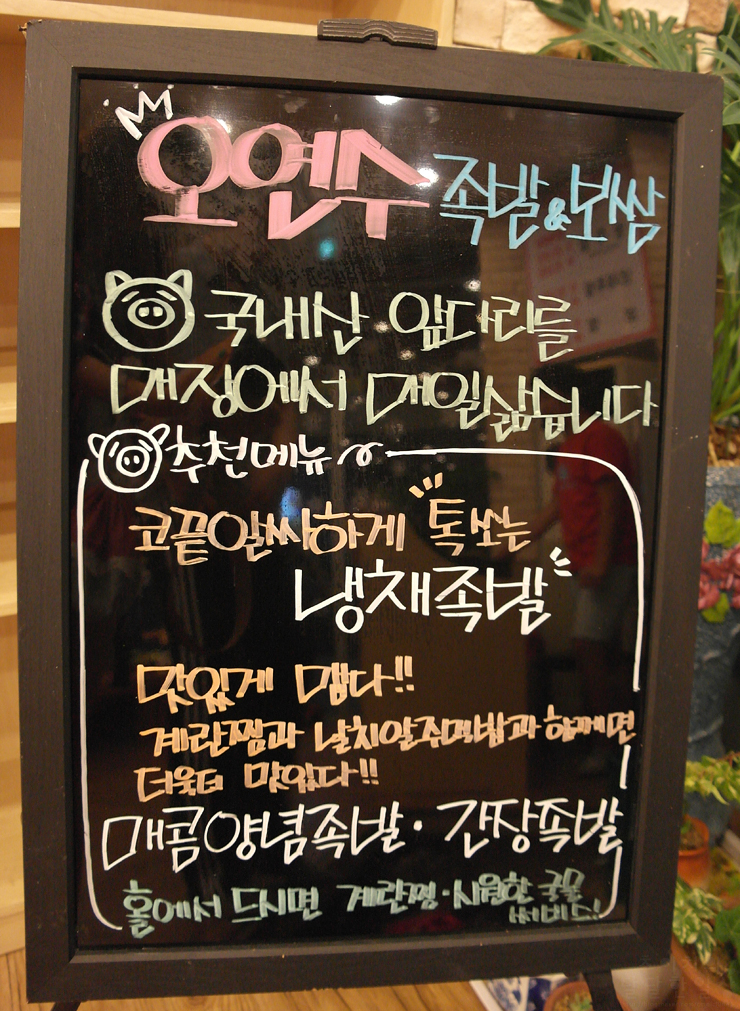 오연수 족발&보쌈
국내산 앞다리를
매장에서 매일삶습니다
추천메뉴
코끝알싸하게 톡쏘는
냉채족발
맛있게 맵다!!
계란찜과 날치알주먹밥과 함께면
더욱더 맛있다!!
매콤양념족발·간장족발
홀에서 드시면 계란찜·시원한 국물
써비스!